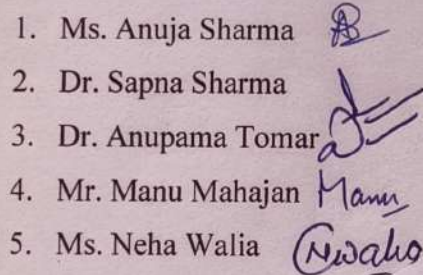 1. Ms. Anuja Sharma
2. Dr. Sapna Sharma
3. Dr. Anupama Tomar
4. Mr. Manu Mahajan Manu
5. Ms. Neha Walia